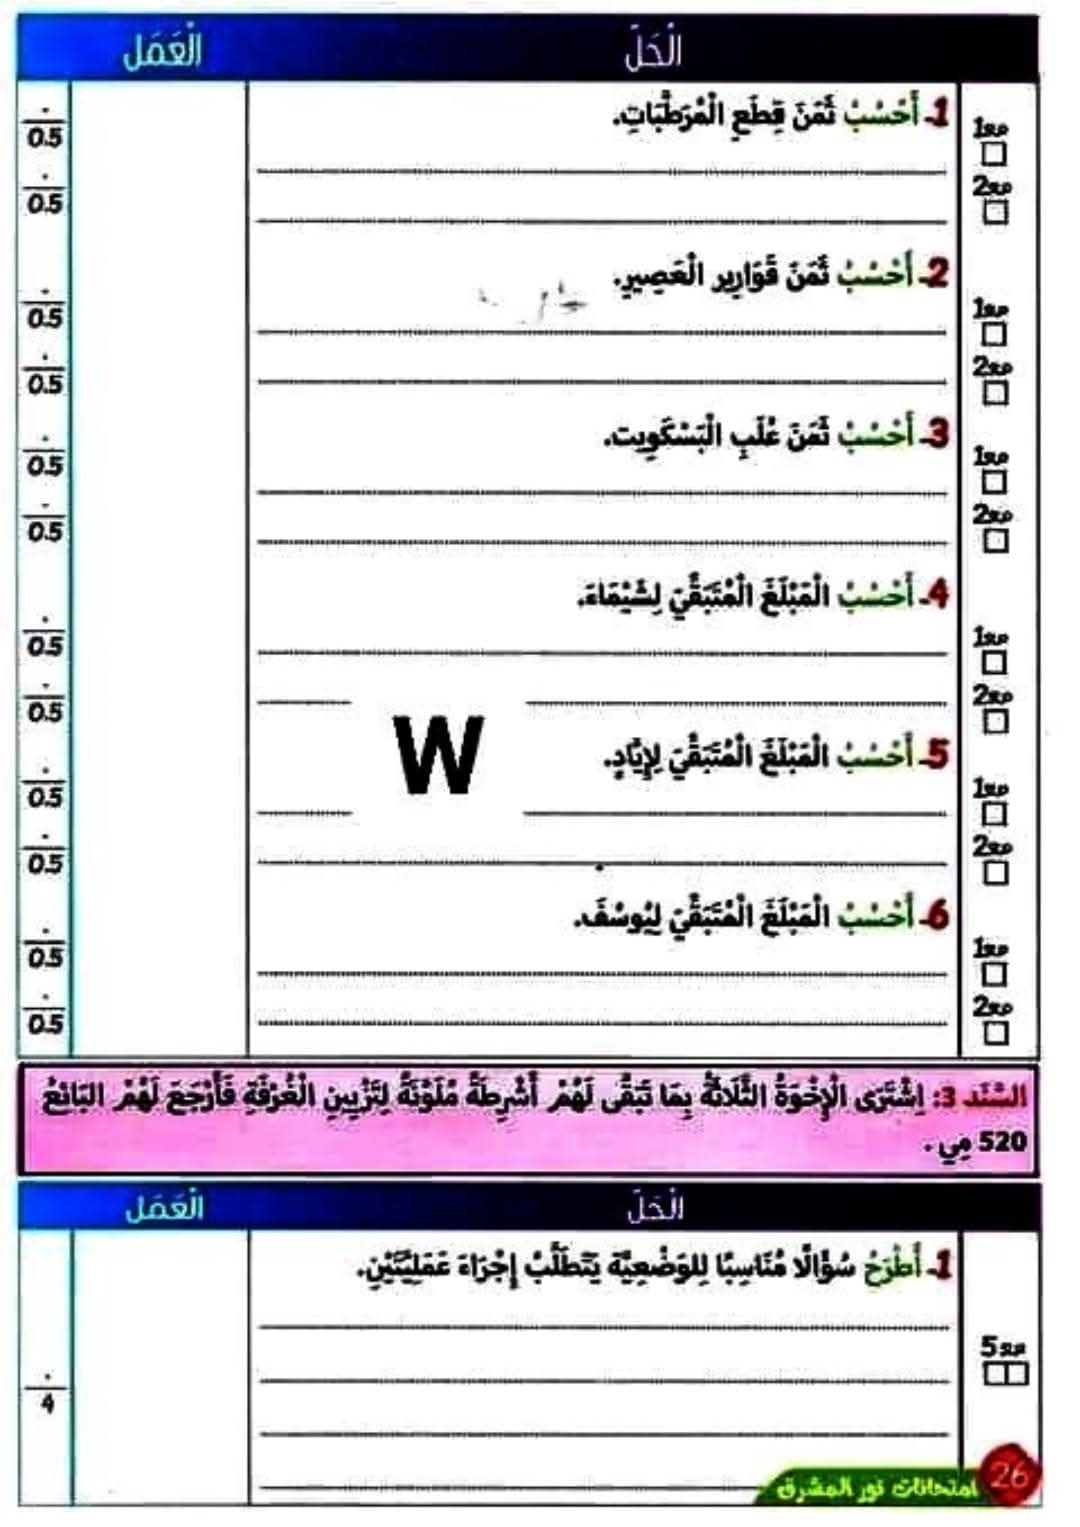 الْحَلّ الْعَمَل
1ـ أَحْسُبُ ثَمَنَ قِطَعِ الْمُرَطَّبَاتِ.
مع1
0.5
مع2
0.5
2ـ أَحْسُبُ ثَمَنَ قَوَارِيرِ الْعَصِيرِ.
مع1
0.5
مع2
0.5
3ـ أَحْسُبُ ثَمَنَ عُلَبِ الْبَسْكَوِيت.
مع1
0.5
مع2
0.5
4ـ أَحْسُبُ الْمَبْلَغَ الْمُتَبَقِّيَ لِشَيْمَاءَ.
مع1
0.5
مع2
0.5
W
5ـ أَحْسُبُ الْمَبْلَغَ الْمُتَبَقِّيَ لِإِيَادٍ.
مع1
0.5
مع2
0.5
6ـ أَحْسُبُ الْمَبْلَغَ الْمُتَبَقِّيَ لِيُوسُفَ.
مع1
0.5
مع2
0.5
السَّنَد 3: اِشْتَرَى الْإِخْوَةُ الثَّلَاثَةُ بِمَا تَبَقَّى لَهُمْ أَشْرِطَةً مُلَوَّنَةً لِتَزْيِينِ الْغُرْفَةِ فَأَرْجَعَ لَهُمْ البَائِعُ
520 مِي .
الْحَلّ الْعَمَل
1ـ أَطْرَحُ سُؤَالًا مُنَاسِبًا لِلوَضْعِيَّة يَتَطَلَّبُ إِجْرَاءَ عَمَلِيَّتَيْنِ.
مع5
4
امتحانات نور المشرق 26